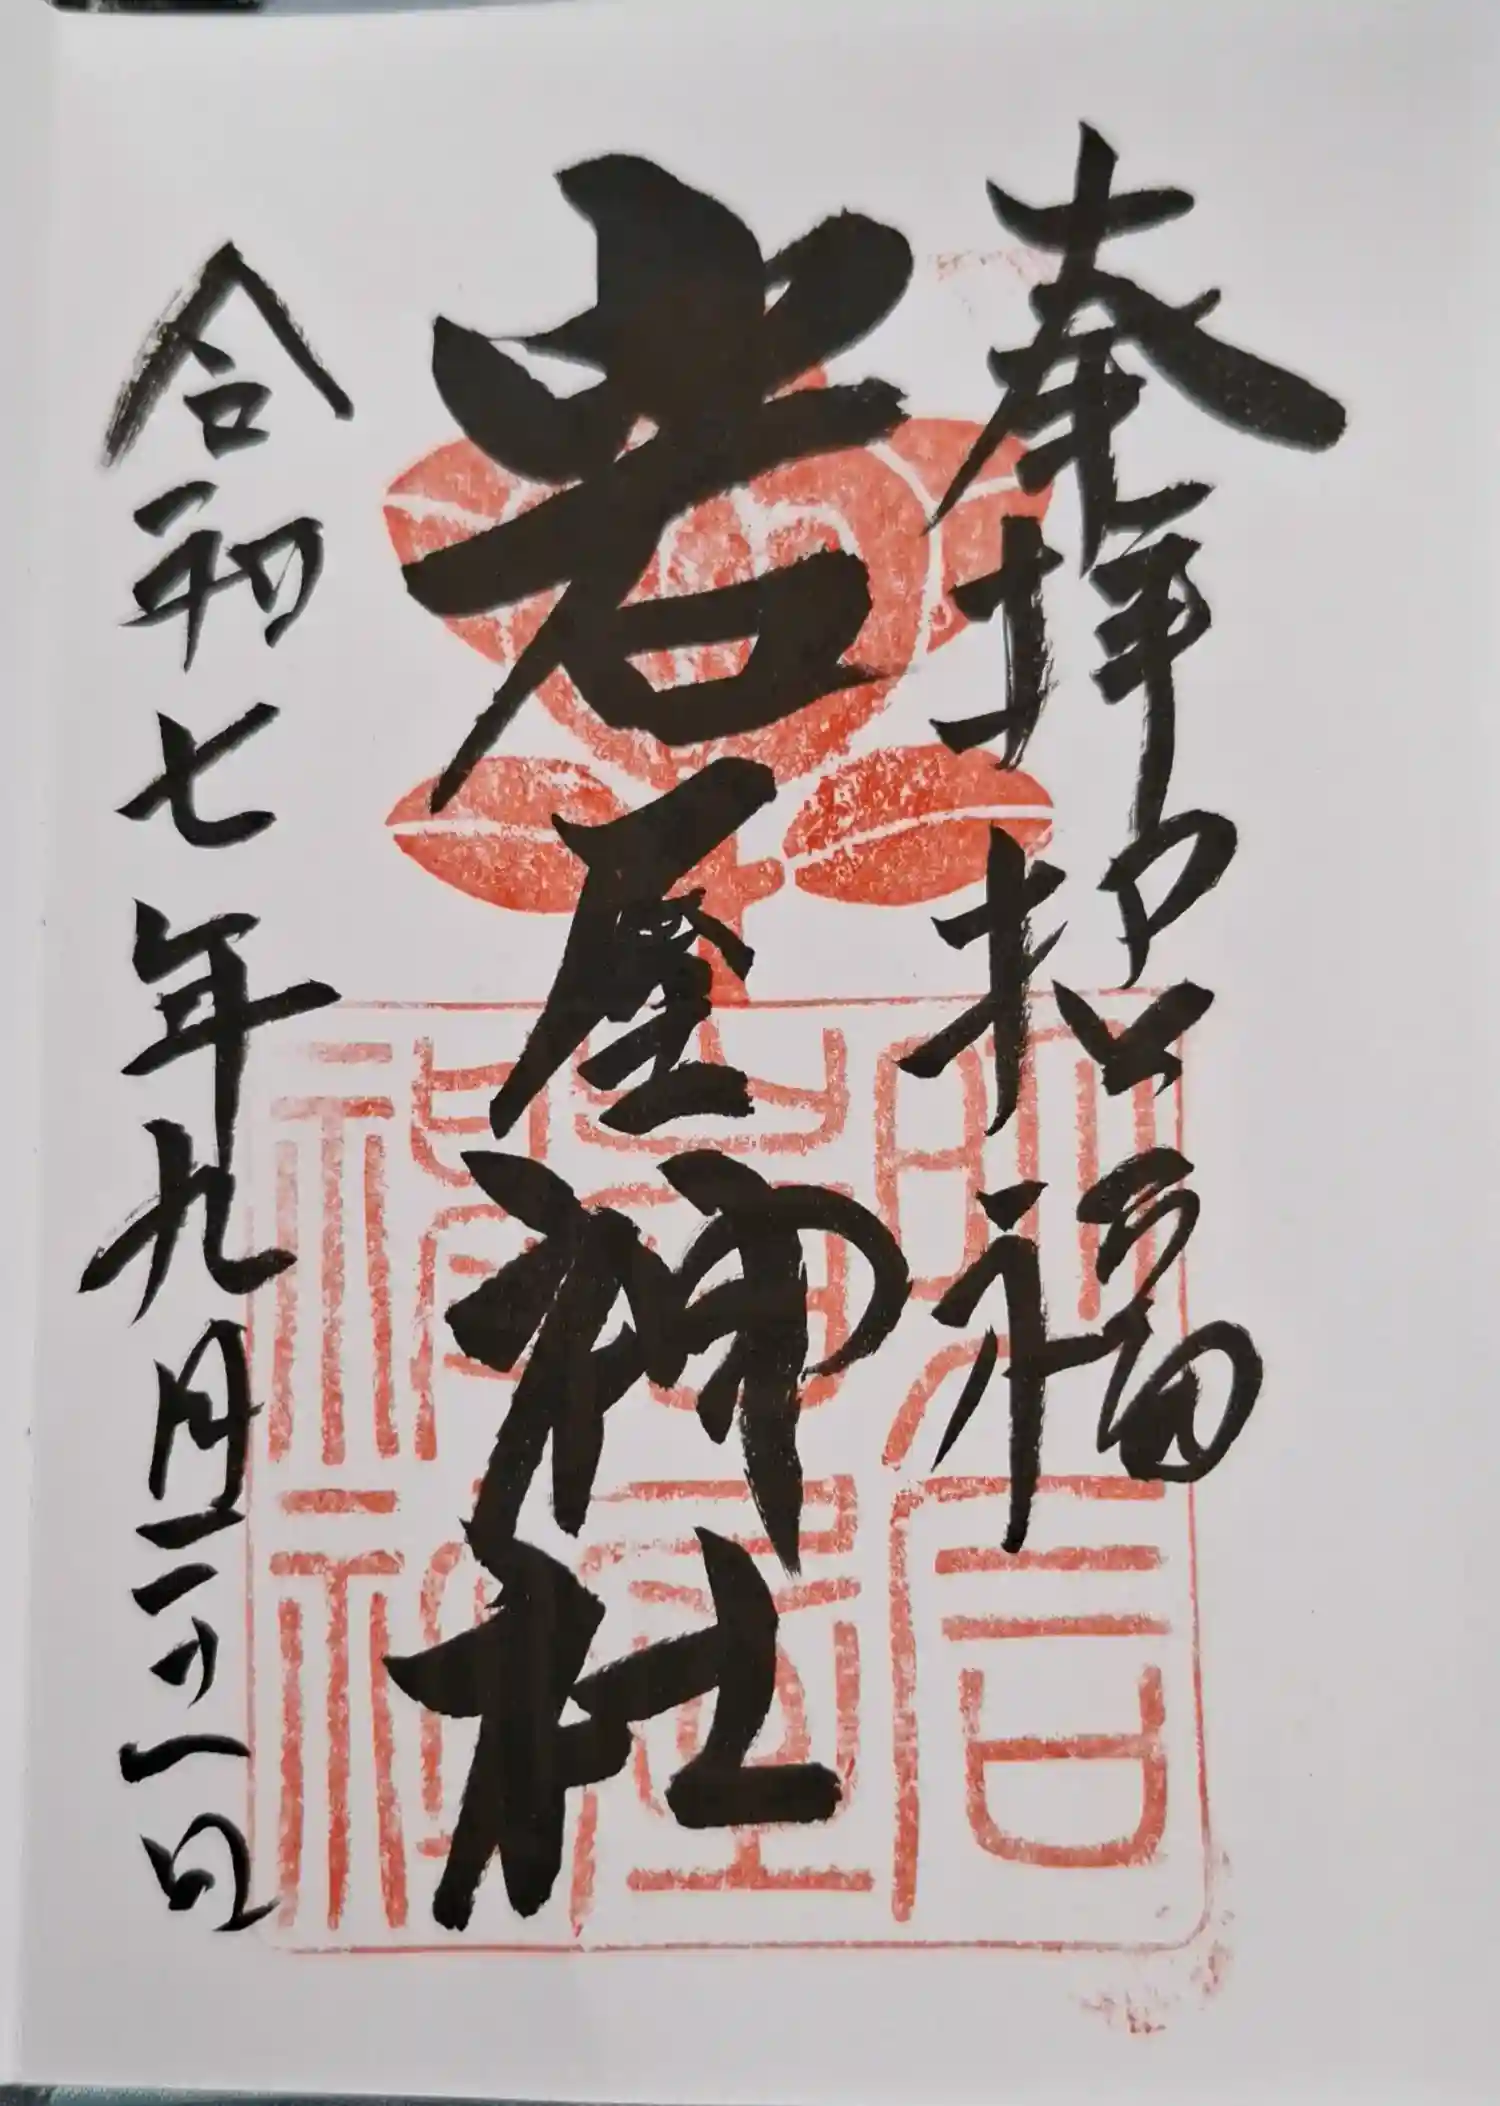 奉拝 招福
岩屋神社
令和七年九月二十一日
明石
岩屋
神社